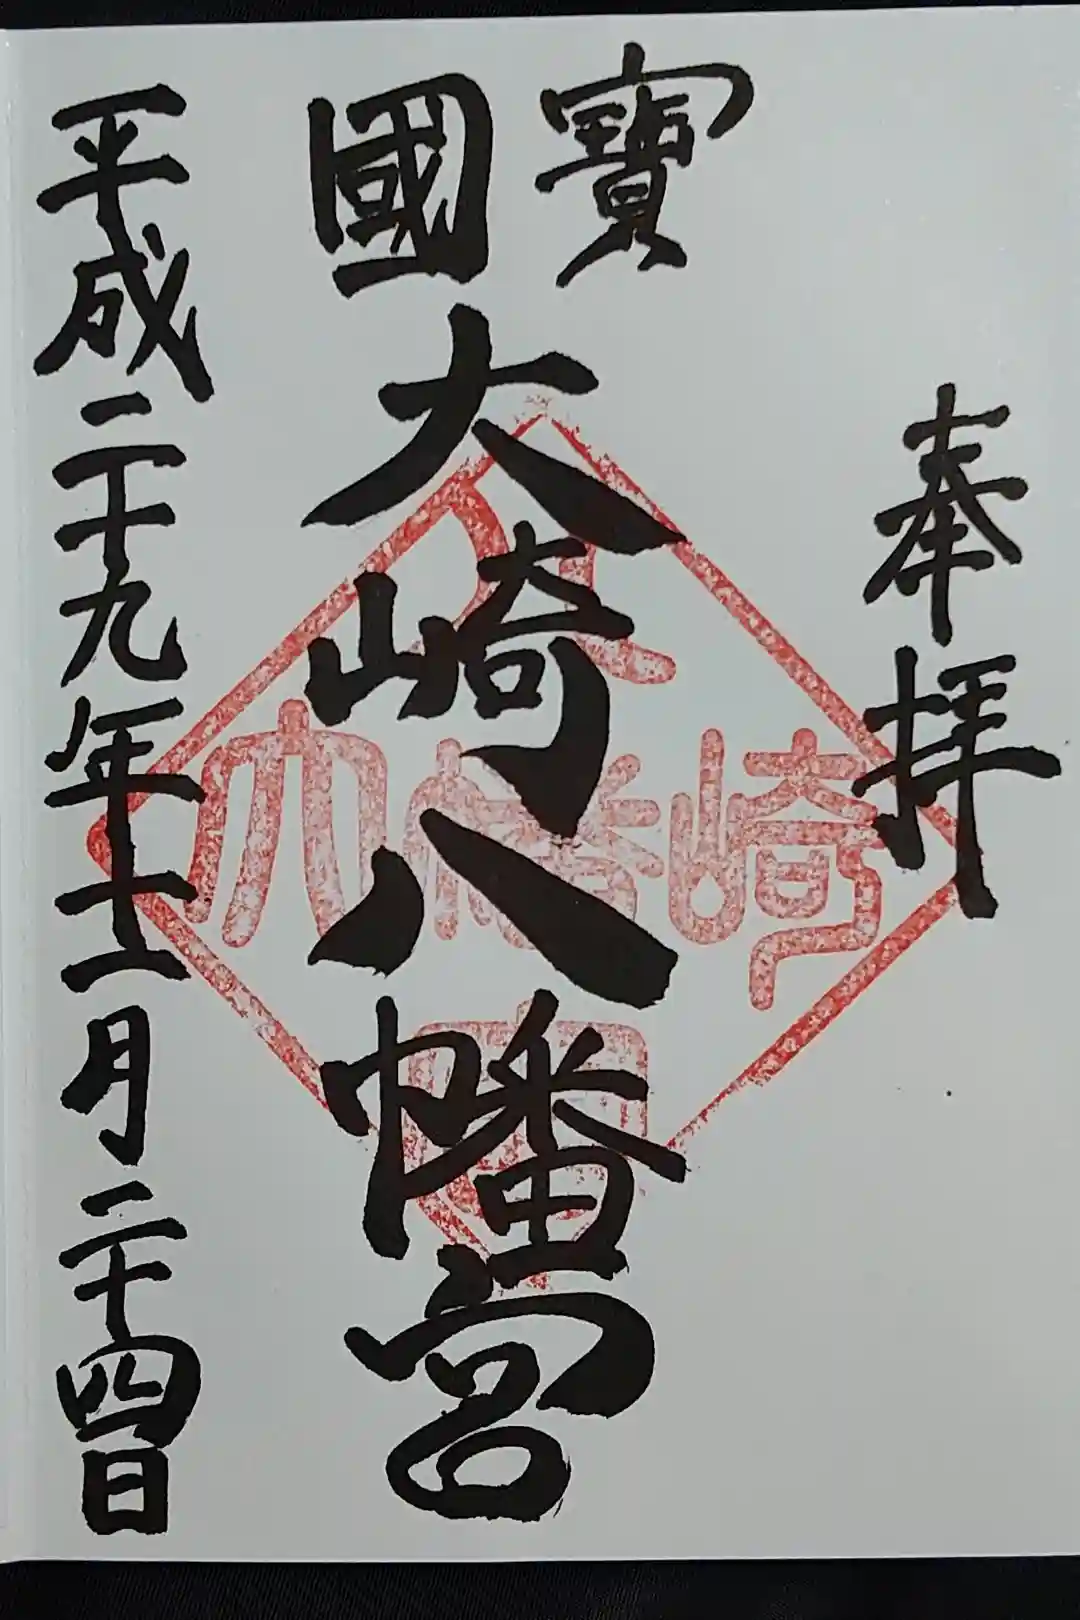 奉拝
寶國
大崎八幡宮
平成二十九年十一月二十四日
大崎八幡宮